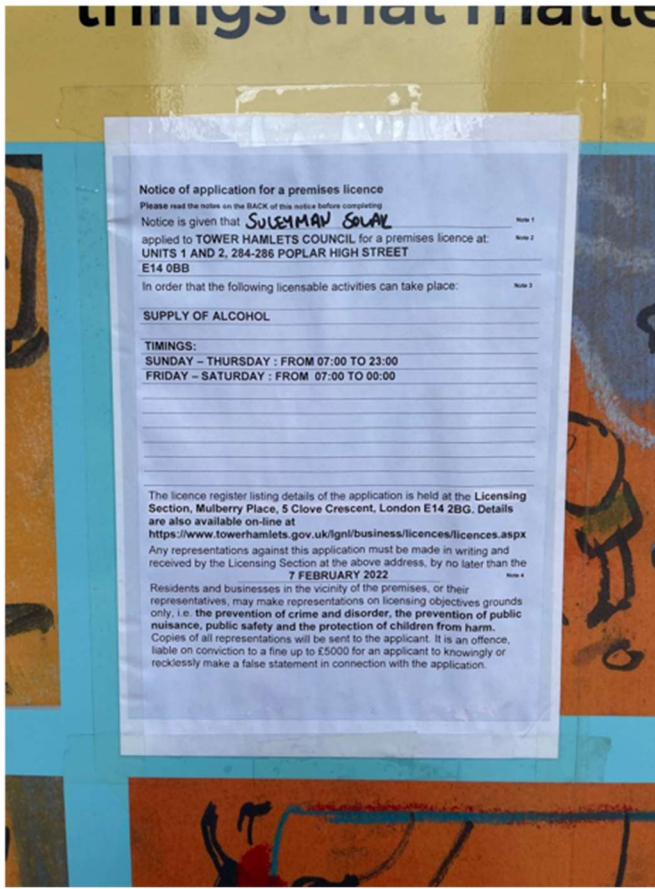 things that matte
Notice of application for a premises licence
Please read the notes on the BACK of this notice before completing
Notice is given that SULEYMAN SOLAK Note 1
applied to TOWER HAMLETS COUNCIL for a premises licence at: Note 2
UNITS 1 AND 2, 284-286 POPLAR HIGH STREET
E14 0BB
In order that the following licensable activities can take place: Note 3
SUPPLY OF ALCOHOL
TIMINGS:
SUNDAY – THURSDAY : FROM 07:00 TO 23:00
FRIDAY – SATURDAY : FROM 07:00 TO 00:00
The licence register listing details of the application is held at the Licensing
Section, Mulberry Place, 5 Clove Crescent, London E14 2BG. Details
are also available on-line at
https://www.towerhamlets.gov.uk/lgnl/business/licences/licences.aspx
Any representations against this application must be made in writing and
received by the Licensing Section at the above address, by no later than the
7 FEBRUARY 2022 Note 4
Residents and businesses in the vicinity of the premises, or their
representatives, may make representations on licensing objectives grounds
only, i.e. the prevention of crime and disorder, the prevention of public
nuisance, public safety and the protection of children from harm.
Copies of all representations will be sent to the applicant. It is an offence,
liable on conviction to a fine up to £5000 for an applicant to knowingly or
recklessly make a false statement in connection with the application.